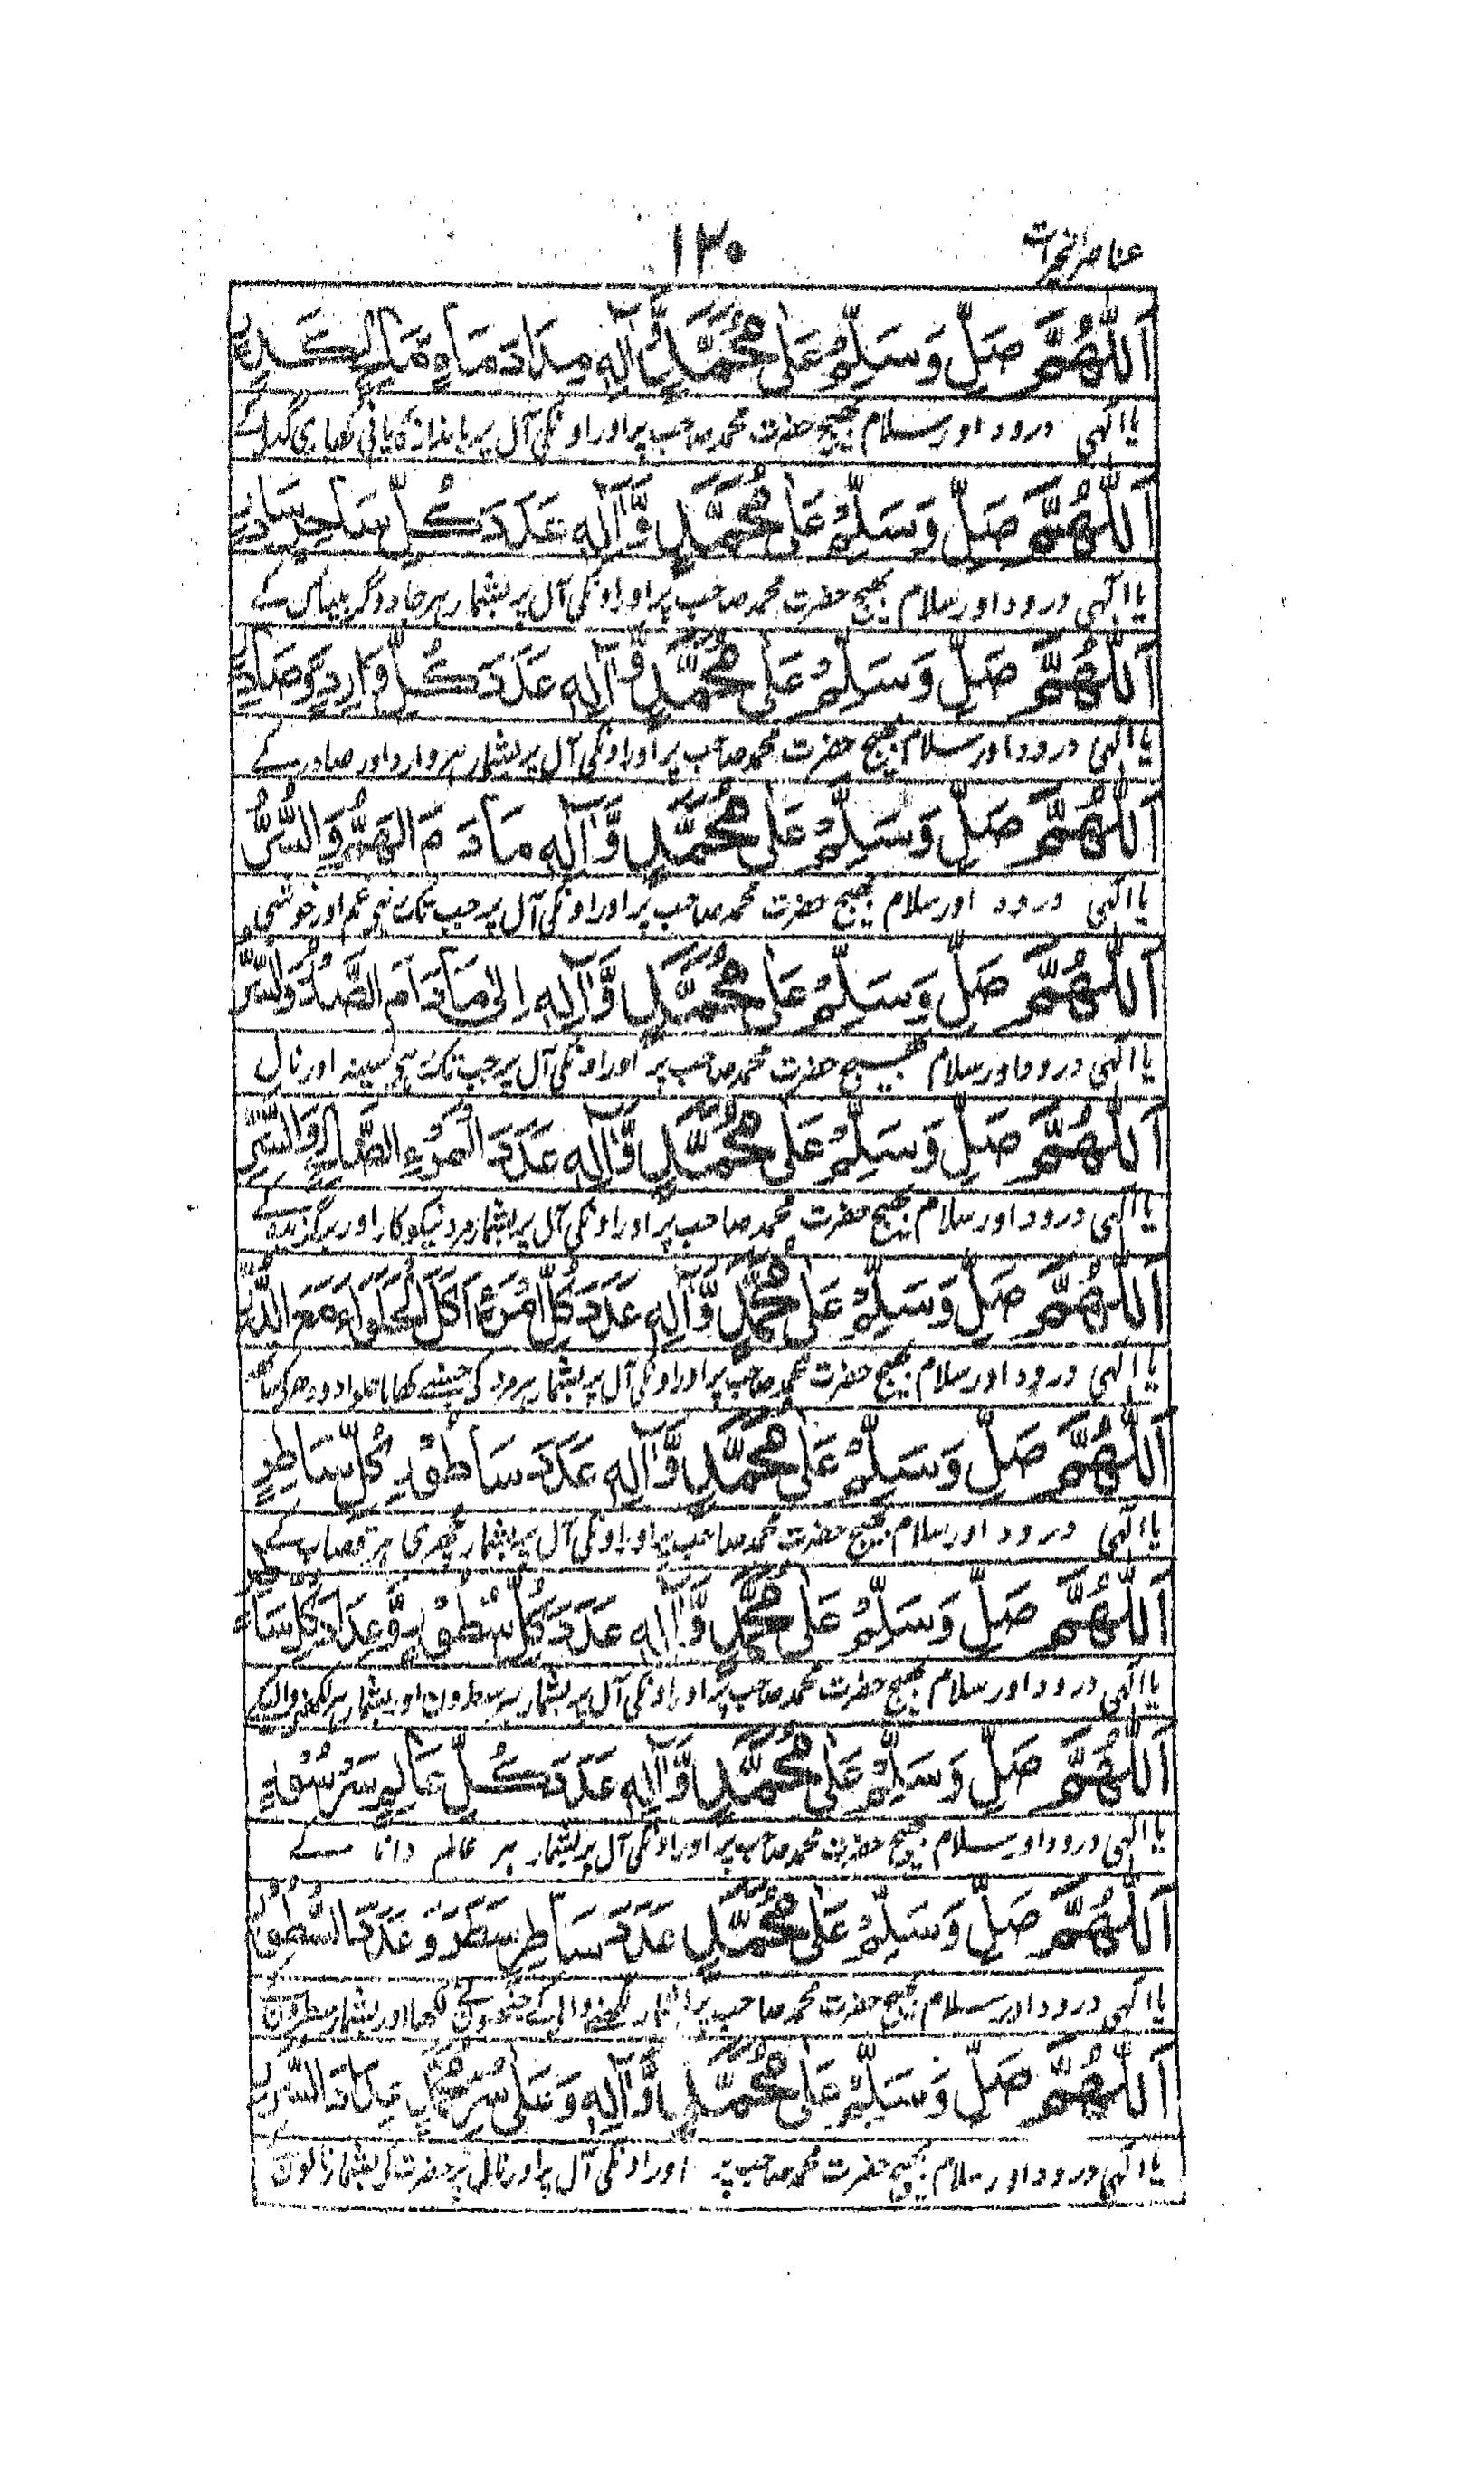 عناصر الخیرات
۱۲۰
اَللّٰهُمَّ صَلِّ وَسَلِّمْ عَلٰی مُحَمَّدٍ وَّاٰلِهٖ مِدَادَ مَاءٍ مَالِحٍ كَدِرٍ
یا الٰہی درود اور سلام بھیج حضرت محمد صاحب پر اور اونکی آل پر باندازہ پانی کھاری گدلے
اَللّٰهُمَّ صَلِّ وَسَلِّمْ عَلٰی مُحَمَّدٍ وَّاٰلِهٖ عَدَدَ كُلِّ سَاحِرٍ سَادِرٍ
یا الٰہی درود اور سلام بھیج حضرت محمد صاحب پر اور اونکی آل پر بشمار ہر جادوگر بیباک کے
اَللّٰهُمَّ صَلِّ وَسَلِّمْ عَلٰی مُحَمَّدٍ وَّاٰلِهٖ عَدَدَ كُلِّ وَارِدٍ وَّصَادِرٍ
یا الٰہی درود اور سلام بھیج حضرت محمد صاحب پر اور اونکی آل پر بشمار ہر وارد اور صادر کے
اَللّٰهُمَّ صَلِّ وَسَلِّمْ عَلٰی مُحَمَّدٍ وَّاٰلِهٖ مَادَامَ الْهَمُّ وَالسُّرُّ
یا الٰہی درود اور سلام بھیج حضرت محمد صاحب پر اور اونکی آل پر جب تک ہی غم اور خوشی
اَللّٰهُمَّ صَلِّ وَسَلِّمْ عَلٰی مُحَمَّدٍ وَّاٰلِهٖ اِلٰی مَادَامَ الصَّدْرُ وَالسُّرُّ
یا الٰہی درود اور سلام بھیج حضرت محمد صاحب پر اور اونکی آل پر جب تک ہی سینہ اور نال
اَللّٰهُمَّ صَلِّ وَسَلِّمْ عَلٰی مُحَمَّدٍ وَّاٰلِهٖ عَدَدَ الْمَرْءِ الصَّالِحِ وَالسِّرِّ
یا الٰہی درود اور سلام بھیج حضرت محمد صاحب پر اور اونکی آل پر بشمار مرد نیکوکار اور برگزیدہ کے
اَللّٰهُمَّ صَلِّ وَسَلِّمْ عَلٰی مُحَمَّدٍ وَّاٰلِهٖ عَدَدَ كُلِّ امْرَءٍ اَكَلَ الْحَلْوَاءَ مَعَ الدَّرِّ
یا الٰہی درود اور سلام بھیج حضرت محمد صاحب پر اور اونکی آل پر بشمار ہر مرد کی جسنے کھایا حلوا دودھ کی ساتھ
اَللّٰهُمَّ صَلِّ وَسَلِّمْ عَلٰی مُحَمَّدٍ وَّاٰلِهٖ عَدَدَ سَاطُوْرِ كُلِّ سَاطِرٍ
یا الٰہی درود اور سلام بھیج حضرت محمد صاحب پر اور اونکی آل پر بشمار چھری ہر قصاب کے
اَللّٰهُمَّ صَلِّ وَسَلِّمْ عَلٰی مُحَمَّدٍ وَّاٰلِهٖ عَدَدَ كُلِّ سُطُوْرٍ وَّعِدَادَ كُلِّ سَاطِرٍ
یا الٰہی درود اور سلام بھیج حضرت محمد صاحب پر اور اونکی آل پر بشمار ہر سطرون اور بشمار ہر لکھنے والیکے
اَللّٰهُمَّ صَلِّ وَسَلِّمْ عَلٰی مُحَمَّدٍ وَّاٰلِهٖ عَدَدَ كُلِّ عَالِمٍ
یا الٰہی درود اور سلام بھیج حضرت محمد صاحب پر اور اونکی آل پر بشمار ہر عالم دانا کے
اَللّٰهُمَّ صَلِّ وَسَلِّمْ عَلٰی مُحَمَّدٍ عَدَدَ سَاطِرٍ سَطَرَ وَعَدَدَ السُّطُوْرِ
یا الٰہی درود اور سلام بھیج حضرت محمد صاحب پر بشمار لکھنے والے کے لکھا اور بشمار سطرون
اَللّٰهُمَّ صَلِّ وَسَلِّمْ عَلٰی مُحَمَّدٍ وَّاٰلِهٖ وَعَلٰی سُرِّ مُحَمَّدٍ
یا الٰہی درود اور سلام بھیج حضرت محمد صاحب پر اور اونکی آل پر اور نال پر حضرت کی بشمار نالون